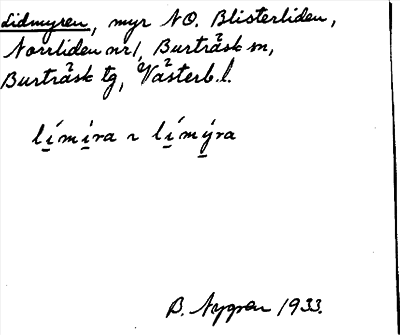 Lidmyren, myr NO. Blisterliden,
Norrliden nr 1, Burträsk sn,
Burträsk tg, Västerb. l.
lí̱mi̱ra ~ lí̱mý̱ra
B. Nygren 1933.